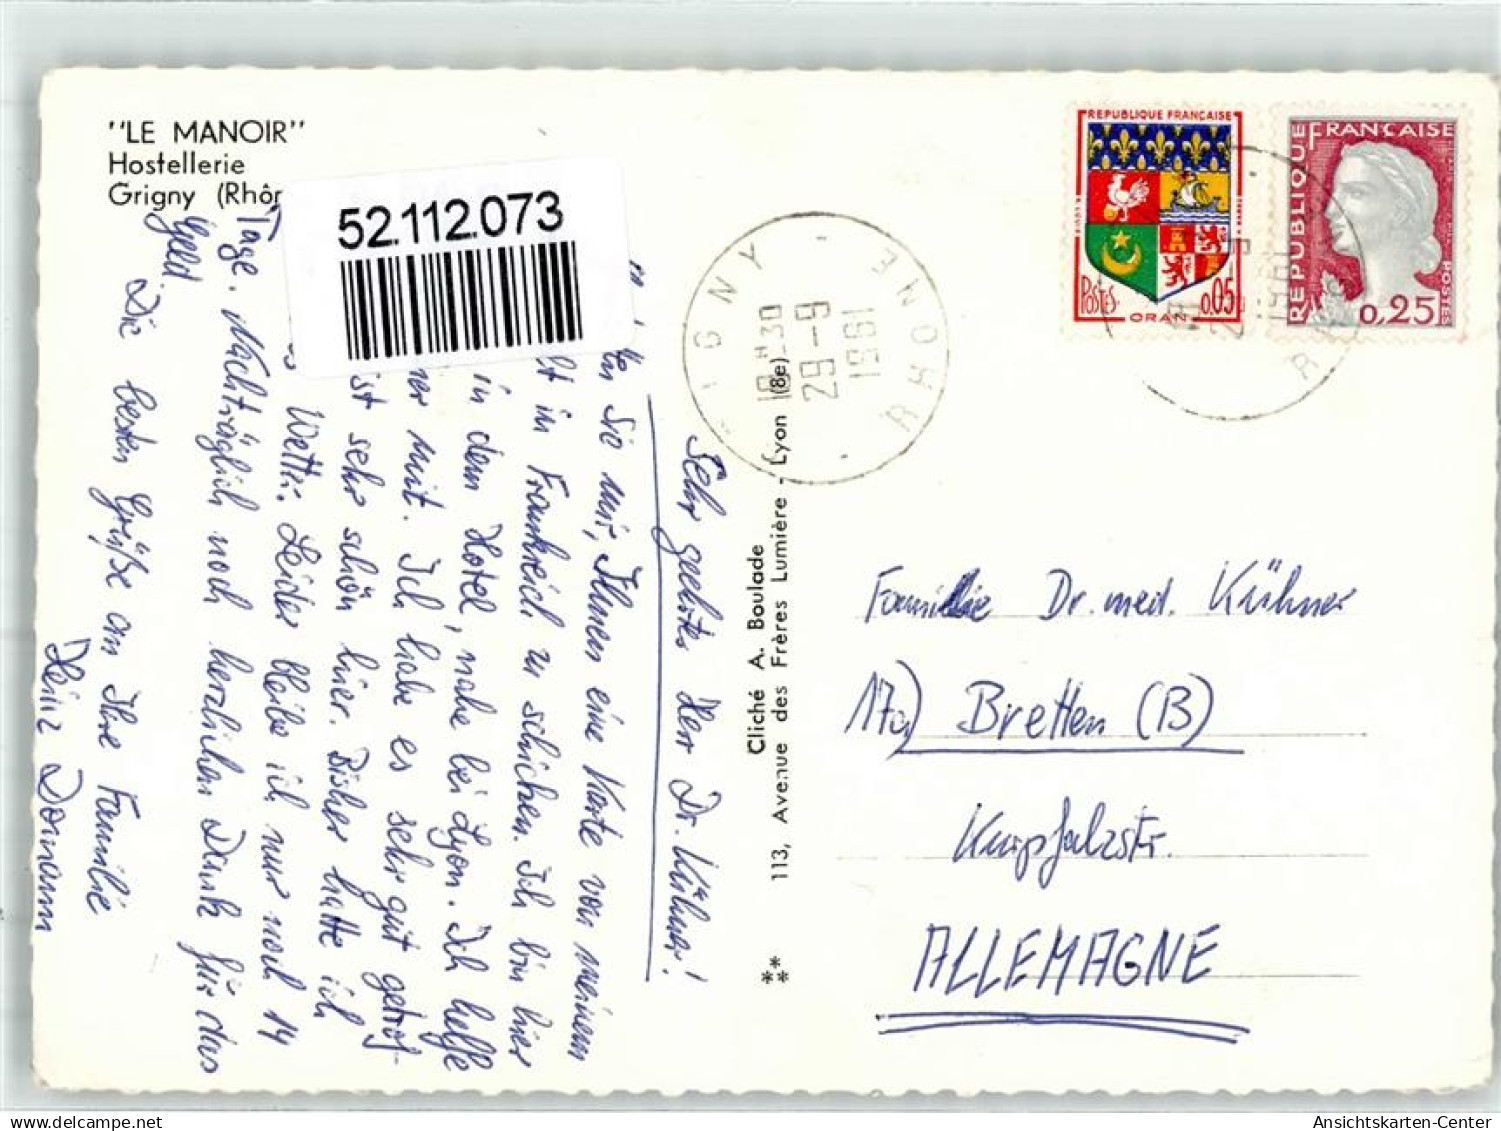 "LE MANOIR"
Hostellerie
Grigny (Rhôn
52.112.073
Sehr geehrter Herr Dr. Kühner!
Sie mir, Ihnen eine Karte von meinem
in Frankreich zu schicken. Ich bin hier
in dem Hotel, nahe bei Lyon. Ich helfe
mit. Ich habe es sehr gut getrof-
ist sehr schön hier. Bisher hatte ich
Wetter. Leider bleibe ich nur noch 14
Tage. Nachträglich noch herzlichen Dank für das
Geld. Die besten Grüße an Ihre Familie
Heinz Dornann
Cliché A. Boulade
113, Avenue des Frères Lumière - Lyon (8e)
**
**
IGNY - RHONE
18H30
29-9
1961
REPUBLIQUE FRANÇAISE
POSTES
0,05
ORAN
REPUBLIQUE FRANÇAISE
POSTES
0,25
Familie Dr. med. Kühner
17a) Bretten (B)
Kurpfalzstr.
ALLEMAGNE
Ansichtskarten-Center